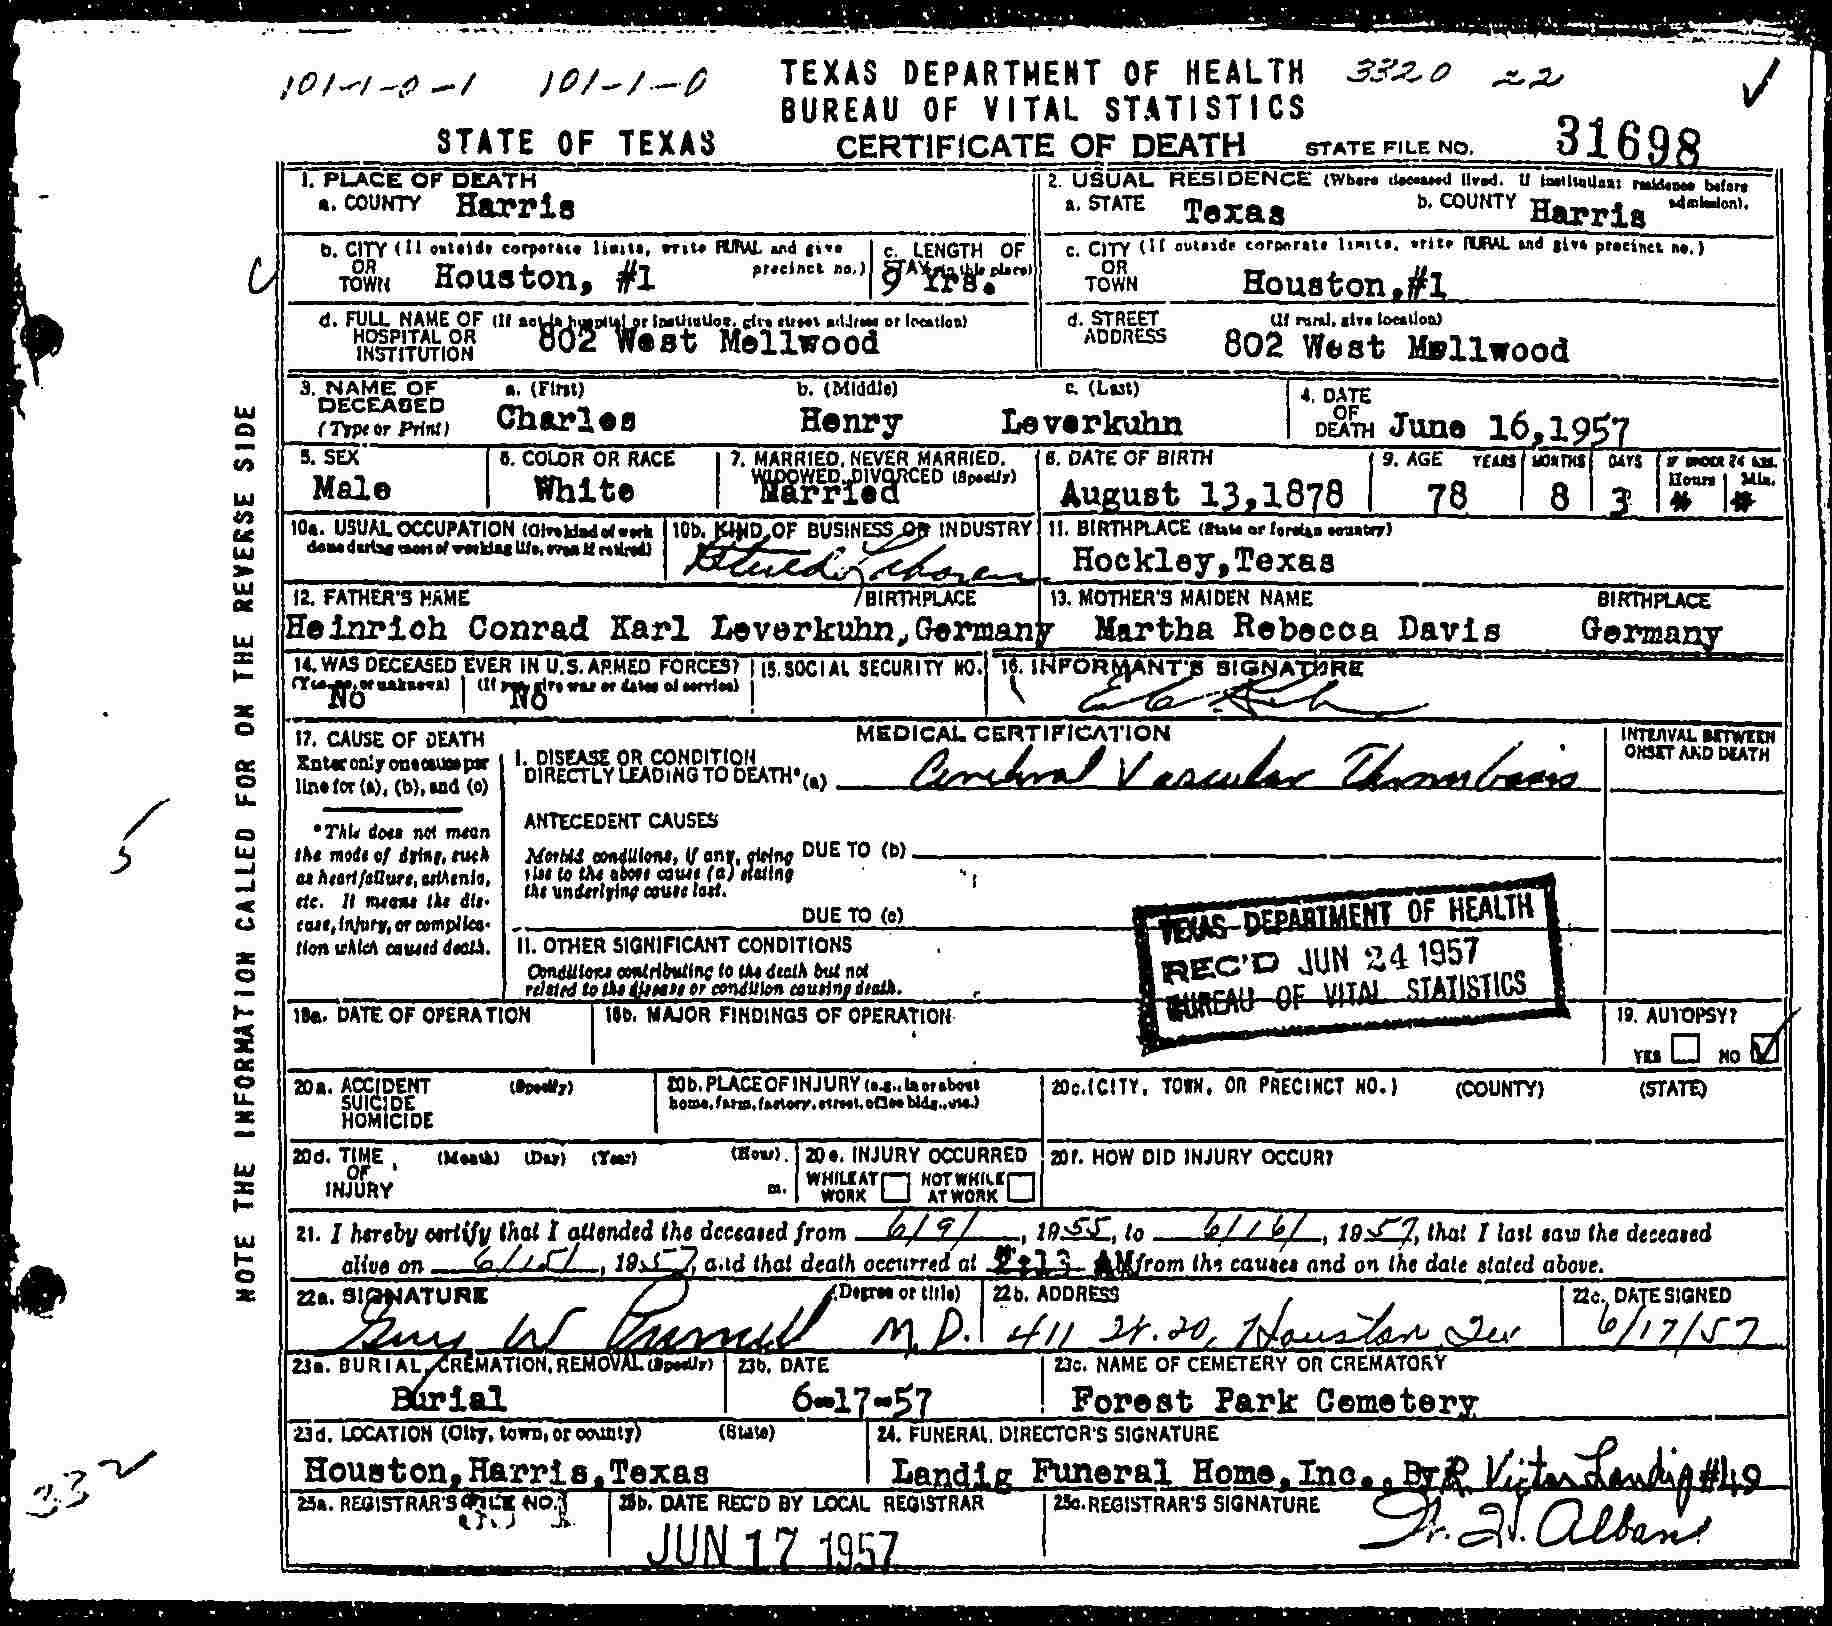 101-1-0-1 101-1-0 TEXAS DEPARTMENT OF HEALTH 3320 22
BUREAU OF VITAL STATISTICS
STATE OF TEXAS CERTIFICATE OF DEATH STATE FILE NO. 31698
NOTE THE INFORMATION CALLED FOR ON THE REVERSE SIDE
1. PLACE OF DEATH
a. COUNTY Harris
2. USUAL RESIDENCE (Where deceased lived. If institution: residence before admission).
a. STATE Texas b. COUNTY Harris
b. CITY (If outside corporate limits, write RURAL and give precinct no.)
OR TOWN Houston, #1
c. LENGTH OF STAY (in this place) 9 Yrs.
c. CITY (If outside corporate limits, write RURAL and give precinct no.)
OR TOWN Houston,#1
d. FULL NAME OF (If not in hospital or institution, give street address or location)
HOSPITAL OR INSTITUTION 802 West Mellwood
d. STREET ADDRESS (If rural, give location)
802 West Mellwood
3. NAME OF DECEASED (Type or Print) a. (First) b. (Middle) c. (Last)
Charles Henry Leverkuhn
4. DATE OF DEATH June 16,1957
5. SEX Male
6. COLOR OR RACE White
7. MARRIED, NEVER MARRIED, WIDOWED, DIVORCED (Specify) Married
8. DATE OF BIRTH August 13,1878
9. AGE YEARS MONTHS DAYS IF UNDER 24 HRS. Hours Min.
78 8 3
10a. USUAL OCCUPATION (Give kind of work done during most of working life, even if retired)
10b. KIND OF BUSINESS OR INDUSTRY
11. BIRTHPLACE (State or foreign country)
Hockley,Texas
12. FATHER'S NAME BIRTHPLACE
Heinrich Conrad Karl Leverkuhn,Germany
13. MOTHER'S MAIDEN NAME BIRTHPLACE
Martha Rebecca Davis Germany
14. WAS DECEASED EVER IN U.S. ARMED FORCES?
(Yes, no, or unknown) (If yes, give war or dates of service)
No No
15. SOCIAL SECURITY NO.
16. INFORMANT'S SIGNATURE
17. CAUSE OF DEATH
Enter only one cause per line for (a), (b), and (c)
*This does not mean the mode of dying, such as heart failure, asthenia, etc. It means the disease, injury, or complication which caused death.
MEDICAL CERTIFICATION
INTERVAL BETWEEN ONSET AND DEATH
I. DISEASE OR CONDITION DIRECTLY LEADING TO DEATH* (a) Cerebral Vascular Thrombosis
ANTECEDENT CAUSES
Morbid conditions, if any, giving rise to the above cause (a) stating the underlying cause last.
DUE TO (b)
DUE TO (c)
II. OTHER SIGNIFICANT CONDITIONS
Conditions contributing to the death but not related to the disease or condition causing death.
TEXAS DEPARTMENT OF HEALTH
REC'D JUN 24 1957
BUREAU OF VITAL STATISTICS
5
18a. DATE OF OPERATION
18b. MAJOR FINDINGS OF OPERATION
19. AUTOPSY?
YES NO
20a. ACCIDENT SUICIDE HOMICIDE (Specify)
20b. PLACE OF INJURY (e.g., in or about home, farm, factory, street, office bldg., etc.)
20c. (CITY, TOWN, OR PRECINCT NO.) (COUNTY) (STATE)
20d. TIME OF INJURY (Month) (Day) (Year) (Hour) m.
20e. INJURY OCCURRED
WHILE AT WORK NOT WHILE AT WORK
20f. HOW DID INJURY OCCUR?
21. I hereby certify that I attended the deceased from 6/9/, 1955, to 6/16/, 1957, that I last saw the deceased
alive on 6/15/, 1957, and that death occurred at AM from the causes and on the date stated above.
22a. SIGNATURE (Degree or title)
M.D.
22b. ADDRESS
411 W. 20, Houston, Tex
22c. DATE SIGNED
6/17/57
23a. BURIAL, CREMATION, REMOVAL (Specify)
Burial
23b. DATE
6-17-57
23c. NAME OF CEMETERY OR CREMATORY
Forest Park Cemetery
23d. LOCATION (City, town, or county) (State)
Houston,Harris,Texas
24. FUNERAL DIRECTOR'S SIGNATURE
Landig Funeral Home,Inc.,By R. Victor Landig #49
25a. REGISTRAR'S FILE NO.
25b. DATE REC'D BY LOCAL REGISTRAR
JUN 17 1957
25c. REGISTRAR'S SIGNATURE
332